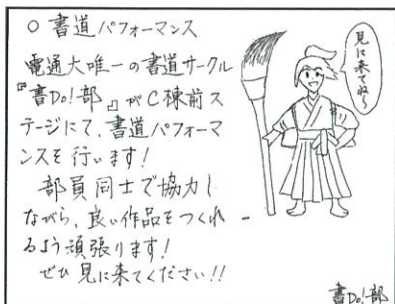 ○ 書道パフォーマンス
電通大唯一の書道サークル
『書Do!部』がC棟前ス
テージにて、書道パフォーマ
ンスを行います!
部員同士で協力し
ながら、良い作品をつくれ
るよう頑張ります!
ぜひ見に来てください!!
見に来てね〜
書Do!部